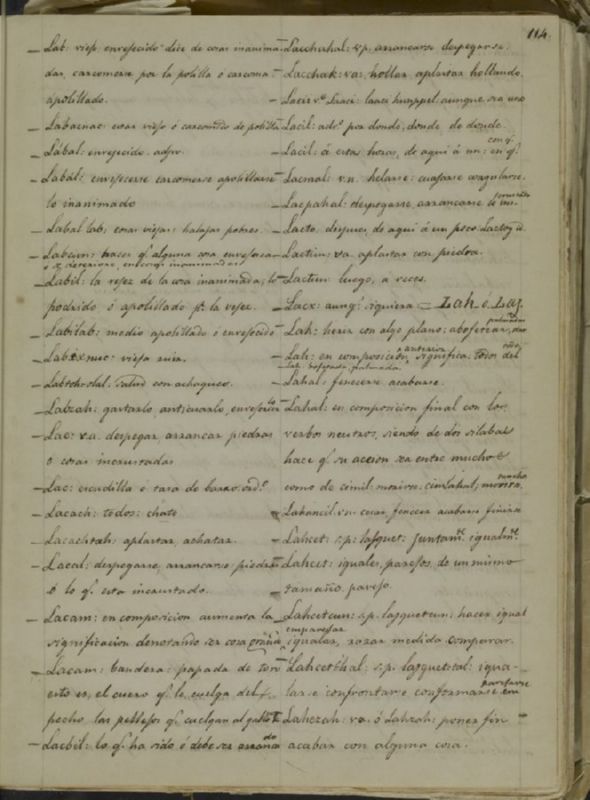 114
Lab: viejo: envejecido dice de cosas inanima-
das, carcomerse por la polilla ó carcoma
apolillado.
Labacnac: cosas viejas ó carcomidas de polilla
Lábal: envejecido. adjvo.
Labál: envejecerse carcomerse apolillarse
lo inanimado
Labal lab; cosas viejas: halajas pobres.
Labcun: hacer q.e alguna cosa envejezca
y se deteriore, en cosas inanimadas
Labil: la vejez de la cosa inanimada; lo
podrido ó apolillado p.r la vejez.
Labilab: medio apolillado ó envejecido
Lab: vieja ruin.
salud con achaques.
Labzah: gastarlo, anticuarlo, envejecerlo
Lac: v.a. despegar, arrancar piedras
ó cosas incrustadas
Lac: escudilla ó tasa de barro ord.o
Lacach: todos: chato
Lacachtah: aplastar, achatar.
Lacal: despegarse, arrancarse piedras
ó lo q.e esta incrustado.
Lacam: en composicion aumenta la
significacion denotando ser cosa grande
Lacam: bandera: papada de toro
esto es, el cuero q.e le cuelga del
pecho, las pellejos q.e cuelgan al gallo
Lacbil: lo q.e ha sido ó debe ser arrancado
v.p. arrancarse despegarse.
Lacchak: va: hollar, aplastar hollando.
Lacix v.e Laaci: laaci huppel: aunque sea uno
Lacil: adv.o por donde, donde de donde.
Lacil: á estas horas, de aqui á un: con q.e en q.e
v.n. helarse: cuajarse coagularse.
Lacpahal: despegarse, arrancarse
Lacto, despues, de aqui á un poco
Lactun: va aplastar con piedra.
Lactun luego, a veces.
Lacx: aunq.e siquiera = Lah. e. Laz.
Lah: herir con algo plano: abofetear,
Lah: en composicion anterior significa: todos del
Lah. bofetada, palmada.
Lahal: fenecerse, acabarse.
Lahal: en composicion final con los
verbos neutros, siendo de dos silabas
hace q.e su accion sea entre muchos
como de cimil: morirse: cimlahal; morirse muchos
v.n. cesar, fenecer acabarse finirse
Lahcet: s.p: lafquet: juntam.te igualm.te
Lahcet: iguales, parejos, de un mismo
tamaño, parejo.
Lahcetcun: s.p. lafquetcun: hacer igual
emparejar
igualar, razar medida comparar.
Lahcethal: s.p. lafquetcal: igua-
larse confrontarse conformarse emparejarse
Lahczah: va. ó Lahzah: poner fin
acabar con alguna cosa.